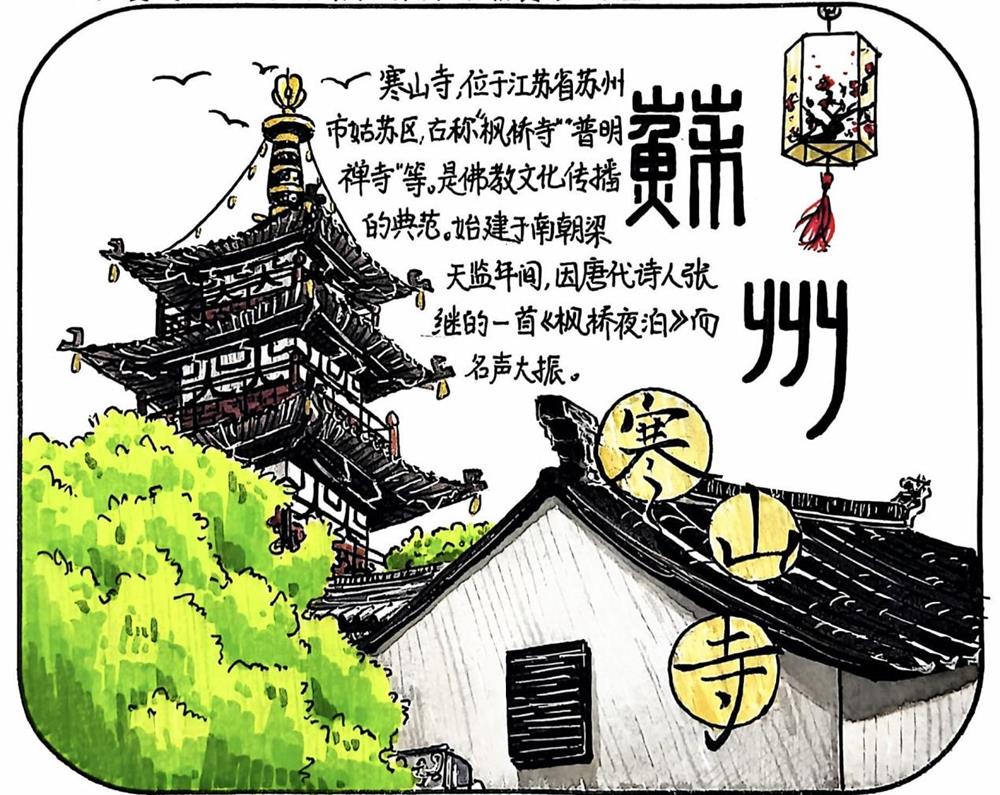 寒山寺,位于江苏省苏州
市姑苏区,古称“枫桥寺”“普明
禅寺”等。是佛教文化传播
的典范。始建于南朝梁
天监年间,因唐代诗人张
继的一首《枫桥夜泊》而
名声大振。
蘇
州
寒
山
寺